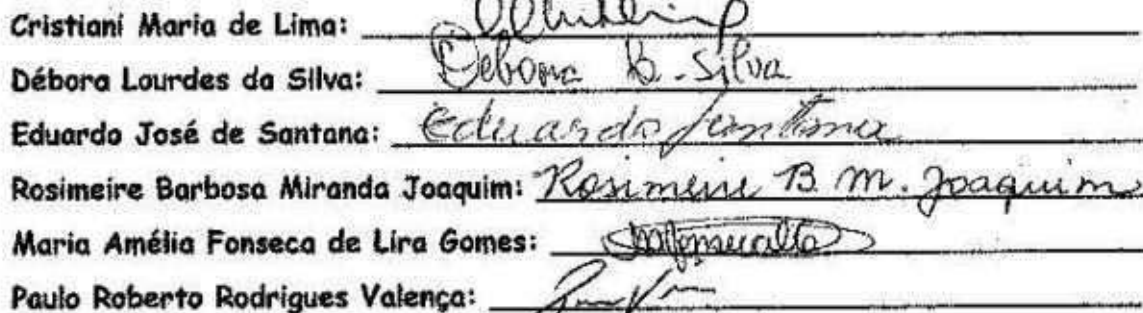 Cristiani Maria de Lima:
Débora Lourdes da Silva: Debora B. Silva
Eduardo José de Santana: Eduardo Santana
Rosimeire Barbosa Miranda Joaquim: Rosimeire B. M. Joaquim
Maria Amélia Fonseca de Lira Gomes:
Paulo Roberto Rodrigues Valença: